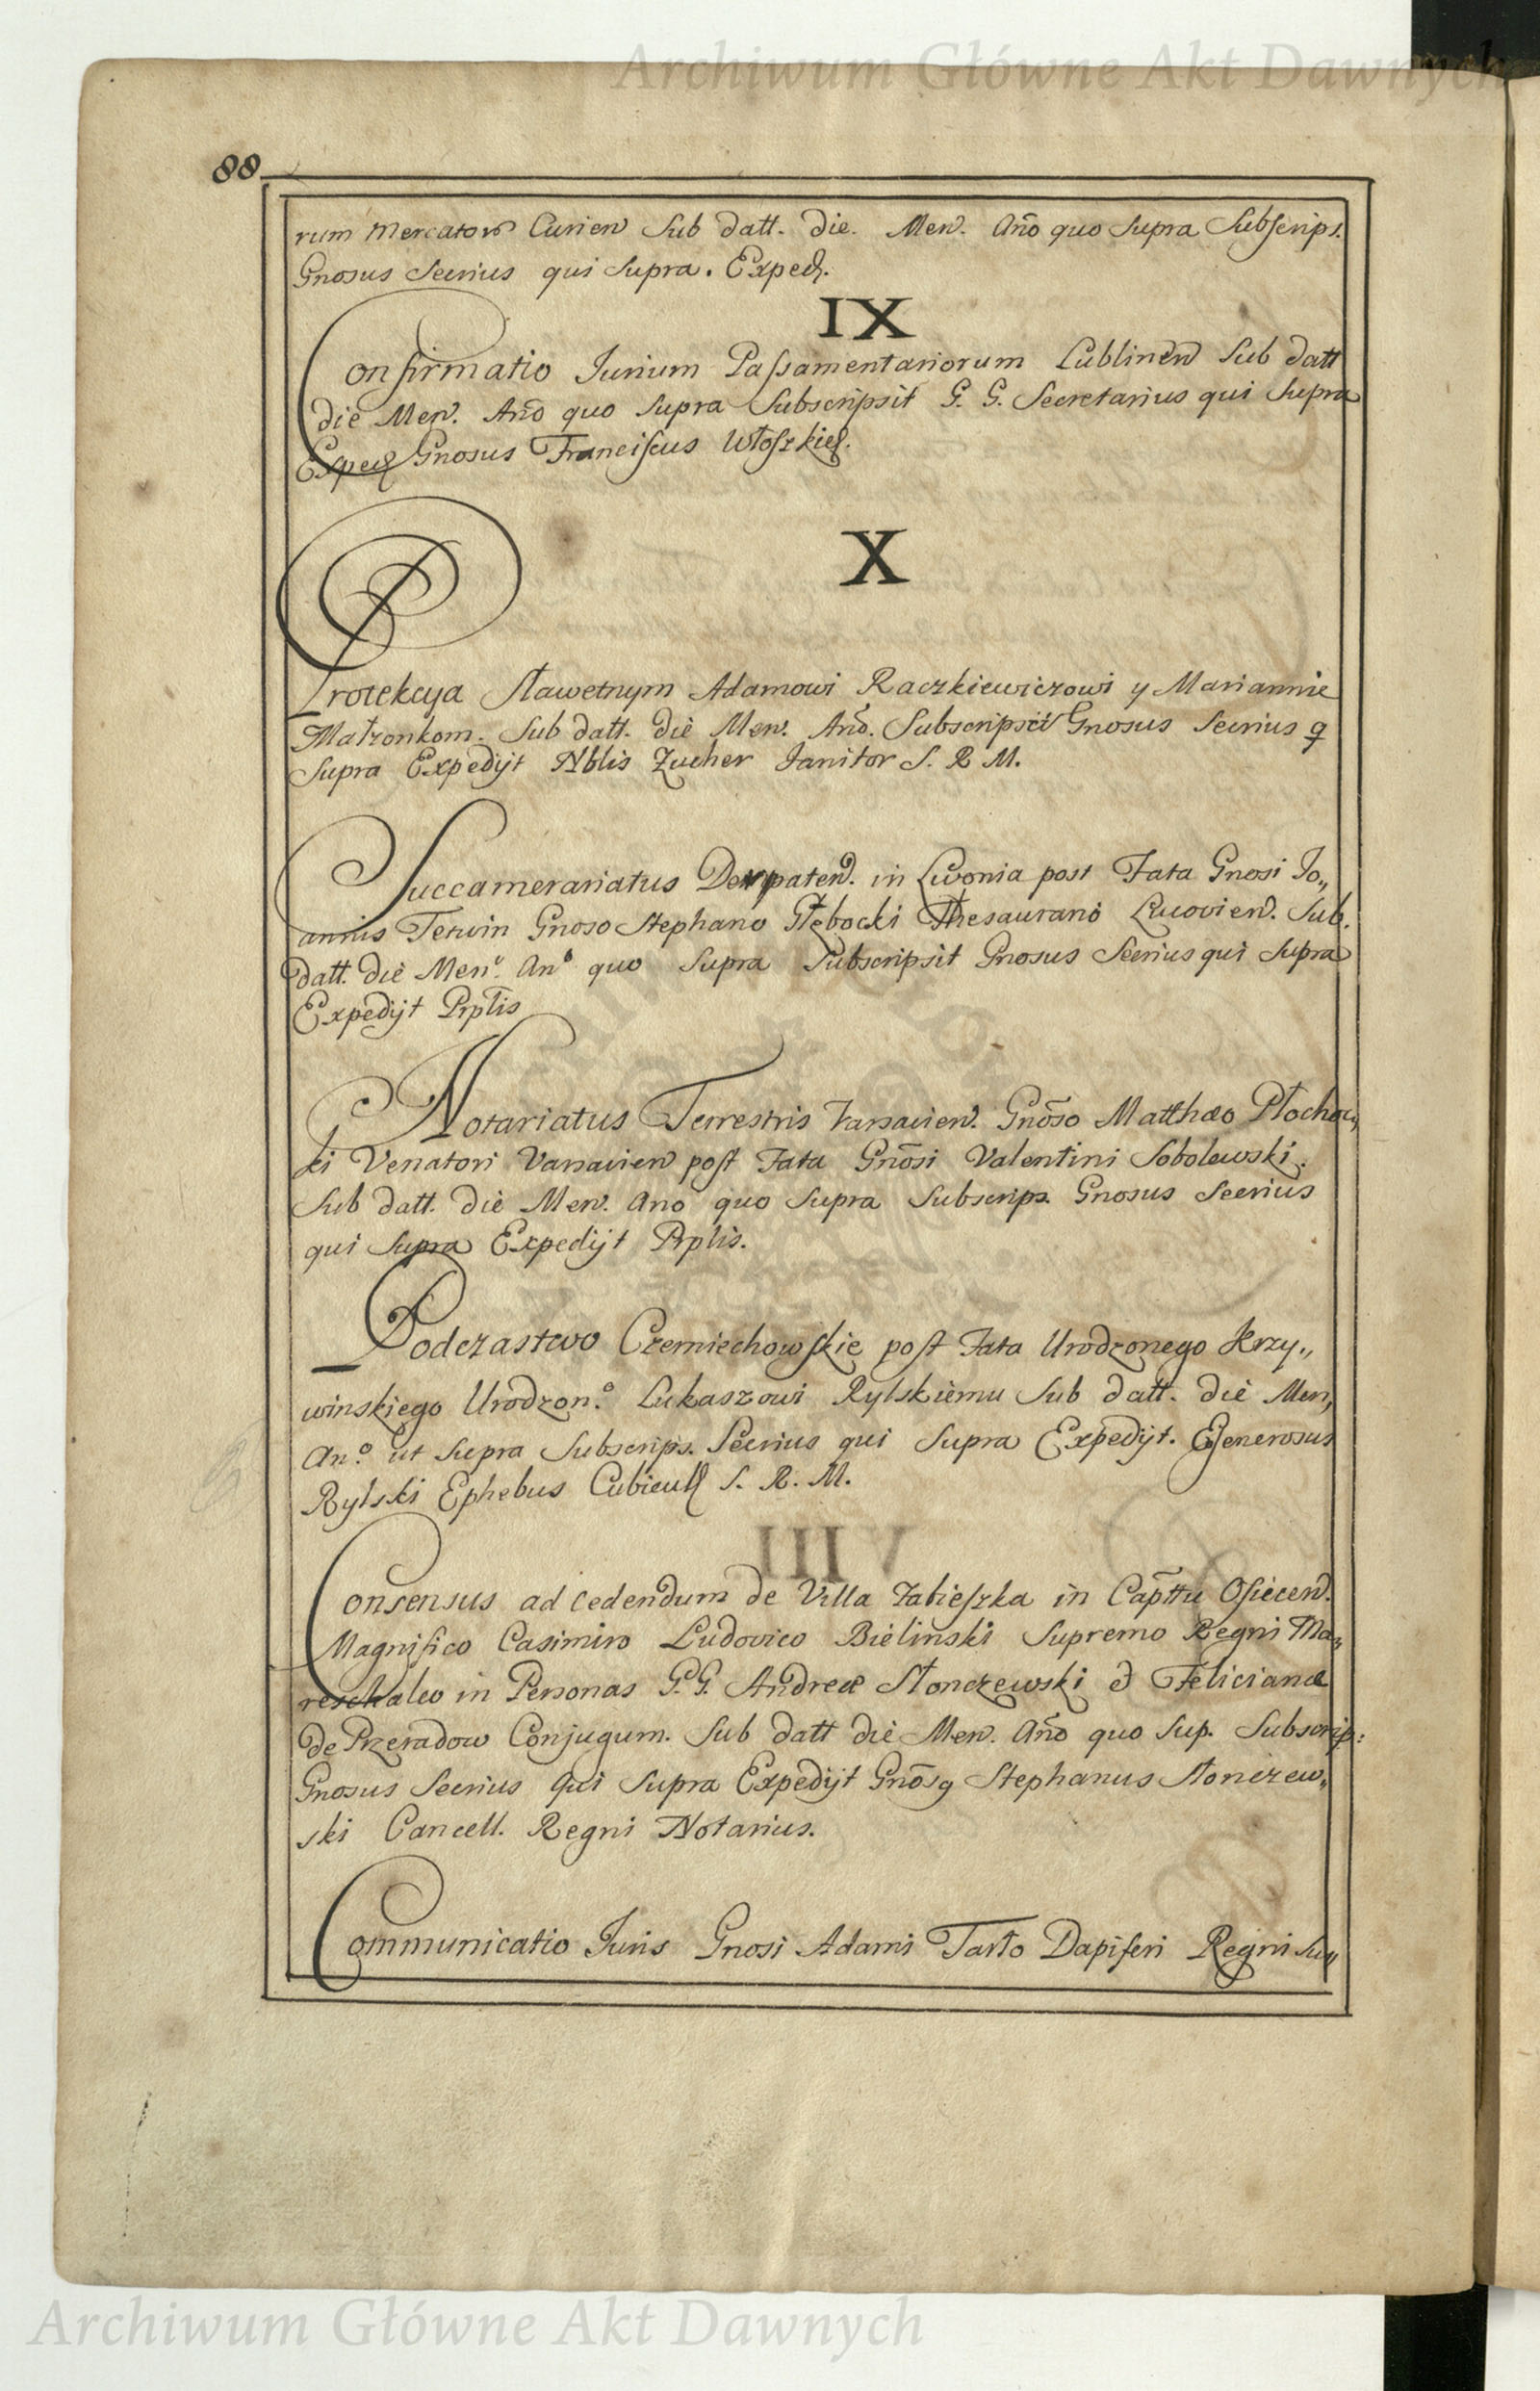 Archiwum Główne Akt Dawnych
88
rum Mercator Curien Sub datt. die. Men. Año quo Supra Subscrips.
Gnosus Secrius qui Supra. Exped.
IX
Confirmatio Jurium Passamentariorum Lublinen Sub datt
die Men. Año quo Supra Subscripsit G. G. Secretarius qui Supra
Exped Gnosus Franciscus Włoszkie
X
Protekcya Sławetnym Adamowi Raczkiewiczowi y Mariannie
Małżonkom. Sub datt. die Men. Año. Subscripsit Gnosus Secrius q
Supra Expedijt Nblis Zucher Janitor S. R M.
Succamerariatus Derpaten. in Livonia post Fata Gnosi Jo„
annis Terwin Gnoso Stephano Głębocki Thesaurario Lucovien. Sub.
datt. die Men. Anº quo Supra Subscripsit Gnosus Secrius qui Supra
Expedijt Prptis
Notariatus Terrestris Varsavien. Gnõso Matthæo Płochoc„
ki Venatori Varsavien post Fata Gnõsi Valentini Sobolewski.
Sub datt. die Men. Ano quo Supra Subscrips. Gnosus Secrius
qui Supra Expedijt Prplis.
Podczastwo Czerniechowskie post Fata Urodzonego Krzy„
winskiego Urodzon.º Lukaszowi Rylskiemu Sub datt. die Men,
An.º ut Supra Subscrips. Secrius qui Supra Expedijt. Generosus
Rylski Ephebus Cubicul S. R. M.
Consensus ad cedendum de Villa Zabieszka in Capttu Osiecen.
Magnifico Casimiro Ludovico Bielinski Supremo Regni Ma„
reschalco in Personas G. G. Andreæ Słonczewski & Felicianæ
de Przeradow Conjugum. Sub datt die Men. Año quo Sup. Subscrip:
Gnosus Secrius qui Supra Expedijt Gnõsq Stephanus Słonczew„
ski Cancell. Regni Notarius.
Communicatio Juris Gnosi Adami Tarło Dapiferi Regni Su„
Archiwum Główne Akt Dawnych